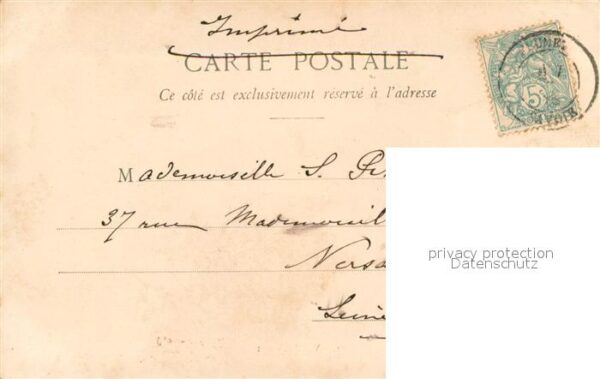 Imprimé
CARTE POSTALE
Ce côté est exclusivement réservé à l'adresse
Mademoiselle S.
37 rue Mademoisel
Versa
Seine
privacy protection
Datenschutz
5